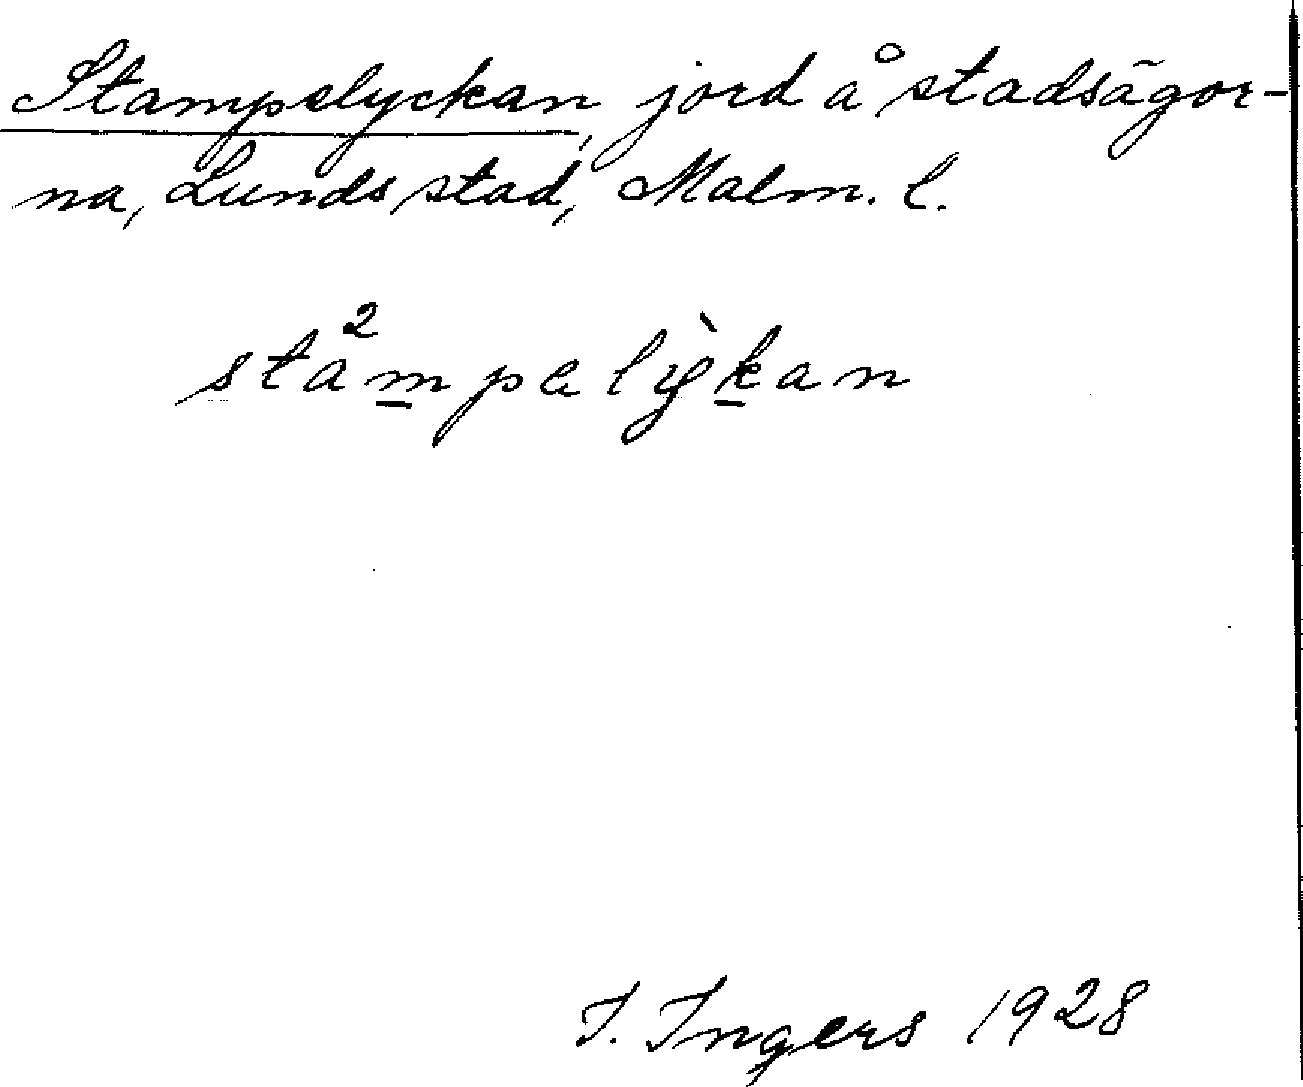 Stampelyckan, jord å stadsägor-
na, Lunds stad, Malm. l.
sta²mpalỳkan
I. Ingers 1928